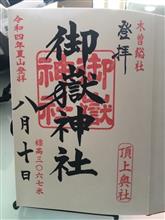 木曽総社
登拝
頂上奥社
御嶽神社
標高三〇六七米
令和四年夏山登拝
八月十日